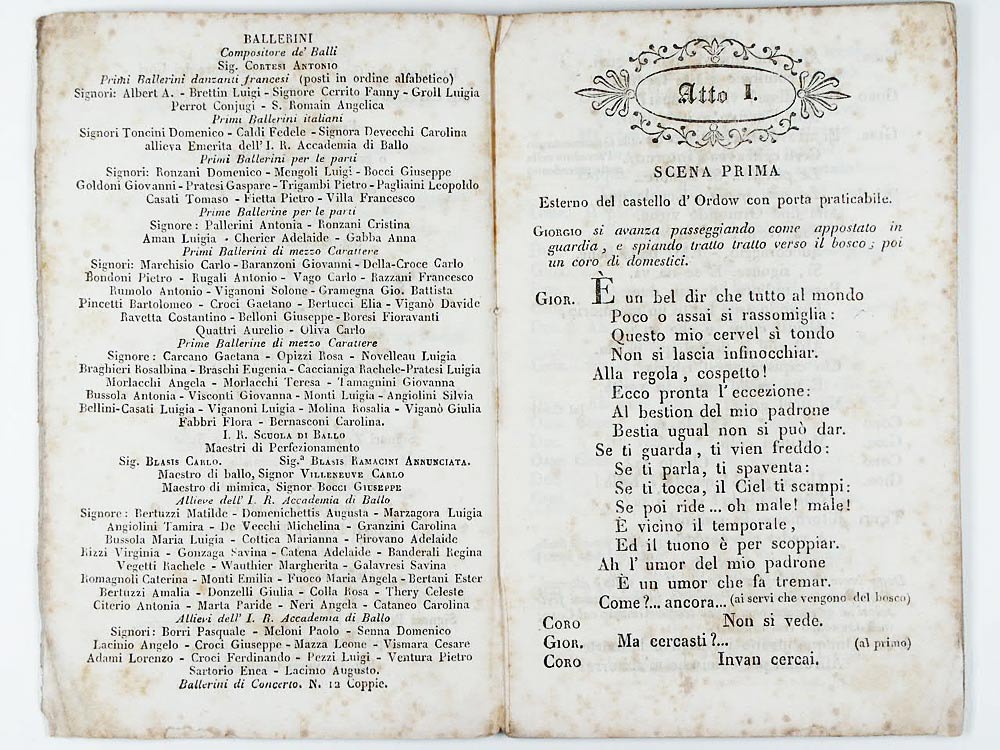 BALLERINI
Compositore de' Balli
Sig. CORTESI ANTONIO
Primi Ballerini danzanti francesi (posti in ordine alfabetico)
Signori: Albert A. - Brettin Luigi - Signore Cerrito Fanny - Groll Luigia
Perrot Conjugi - S. Romain Angelica
Primi Ballerini italiani
Signori Toncini Domenico - Caldi Fedele - Signora Devecchi Carolina
allieva Emerita dell' I. R. Accademia di Ballo
Primi Ballerini per le parti
Signori: Ronzani Domenico - Mengoli Luigi - Bocci Giuseppe
Goldoni Giovanni - Pratesi Gaspare - Trigambi Pietro - Pagliaini Leopoldo
Casati Tomaso - Fietta Pietro - Villa Francesco
Prime Ballerine per le parti
Signore: Pallerini Antonia - Ronzani Cristina
Aman Luigia - Cherier Adelaide - Gabba Anna
Primi Ballerini di mezzo Carattere
Signori: Marchisio Carlo - Baranzoni Giovanni - Della-Croce Carlo
Bondoni Pietro - Rugali Antonio - Vago Carlo - Razzani Francesco
Rumolo Antonio - Viganoni Solone - Gramegna Gio. Battista
Pincetti Bartolomeo - Croci Gaetano - Bertucci Elia - Viganò Davide
Ravetta Costantino - Belloni Giuseppe - Boresi Fioravanti
Quattri Aurelio - Oliva Carlo
Prime Ballerine di mezzo Carattere
Signore: Carcano Gaetana - Opizzi Rosa - Novelleau Luigia
Braghieri Rosalbina - Braschi Eugenia - Caccianiga Rachele-Pratesi Luigia
Morlacchi Angela - Morlacchi Teresa - Tamagnini Giovanna
Bussola Antonia - Visconti Giovanna - Monti Luigia - Angiolini Silvia
Bellini-Casati Luigia - Viganoni Luigia - Molina Rosalia - Viganò Giulia
Fabbri Flora - Bernasconi Carolina.
I. R. SCUOLA DI BALLO
Maestri di Perfezionamento
Sig. BLASIS CARLO. Sig.ª BLASIS RAMACINI ANNUNCIATA.
Maestro di ballo, Signor VILLENEUVE CARLO
Maestro di mimica, Signor BOCCI GIUSEPPE
Allieve dell' I. R. Accademia di Ballo
Signore: Bertuzzi Matilde - Domenichettis Augusta - Marzagora Luigia
Angiolini Tamira - De Vecchi Michelina - Granzini Carolina
Bussola Maria Luigia - Cottica Marianna - Pirovano Adelaide
Rizzi Virginia - Gonzaga Savina - Catena Adelaide - Banderali Regina
Vegetti Rachele - Wauthier Margherita - Galavresi Savina
Romagnoli Caterina - Monti Emilia - Fuoco Maria Angela - Bertani Ester
Bertuzzi Amalia - Donzelli Giulia - Colla Rosa - Thery Celeste
Citerio Antonia - Marta Paride - Neri Angela - Cataneo Carolina
Allievi dell' I. R. Accademia di Ballo
Signori: Borri Pasquale - Meloni Paolo - Senna Domenico
Lacinio Angelo - Croci Giuseppe - Mazza Leone - Vismara Cesare
Adami Lorenzo - Croci Ferdinando - Pezzi Luigi - Ventura Pietro
Sartorio Enea - Lacinio Augusto.
Ballerini di Concerto. N. 12 Coppie.
Atto I.
SCENA PRIMA
Esterno del castello d' Ordow con porta praticabile.
GIORGIO si avanza passeggiando come appostato in
guardia, e spiando tratto tratto verso il bosco; poi
un coro di domestici.
GIOR. È un bel dir che tutto al mondo
Poco o assai si rassomiglia:
Questo mio cervel sì tondo
Non si lascia infinocchiar.
Alla regola, cospetto!
Ecco pronta l' eccezione:
Al bestion del mio padrone
Bestia ugual non si può dar.
Se ti guarda, ti vien freddo:
Se ti parla, ti spaventa:
Se ti tocca, il Ciel ti scampi:
Se poi ride... oh male! male!
È vicino il temporale,
Ed il tuono è per scoppiar.
Ah l' umor del mio padrone
È un umor che fa tremar.
Come?... ancora... (ai servi che vengono del bosco)
CORO Non si vede.
GIOR. Ma cercasti?... (al primo)
CORO Invan cercai.